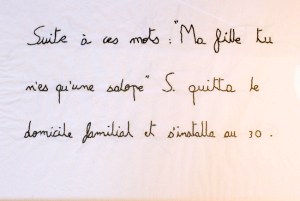 Suite à ces mots : "Ma fille tu
n'es qu'une salope" S. quitta le
domicile familial et s'installa au 30.